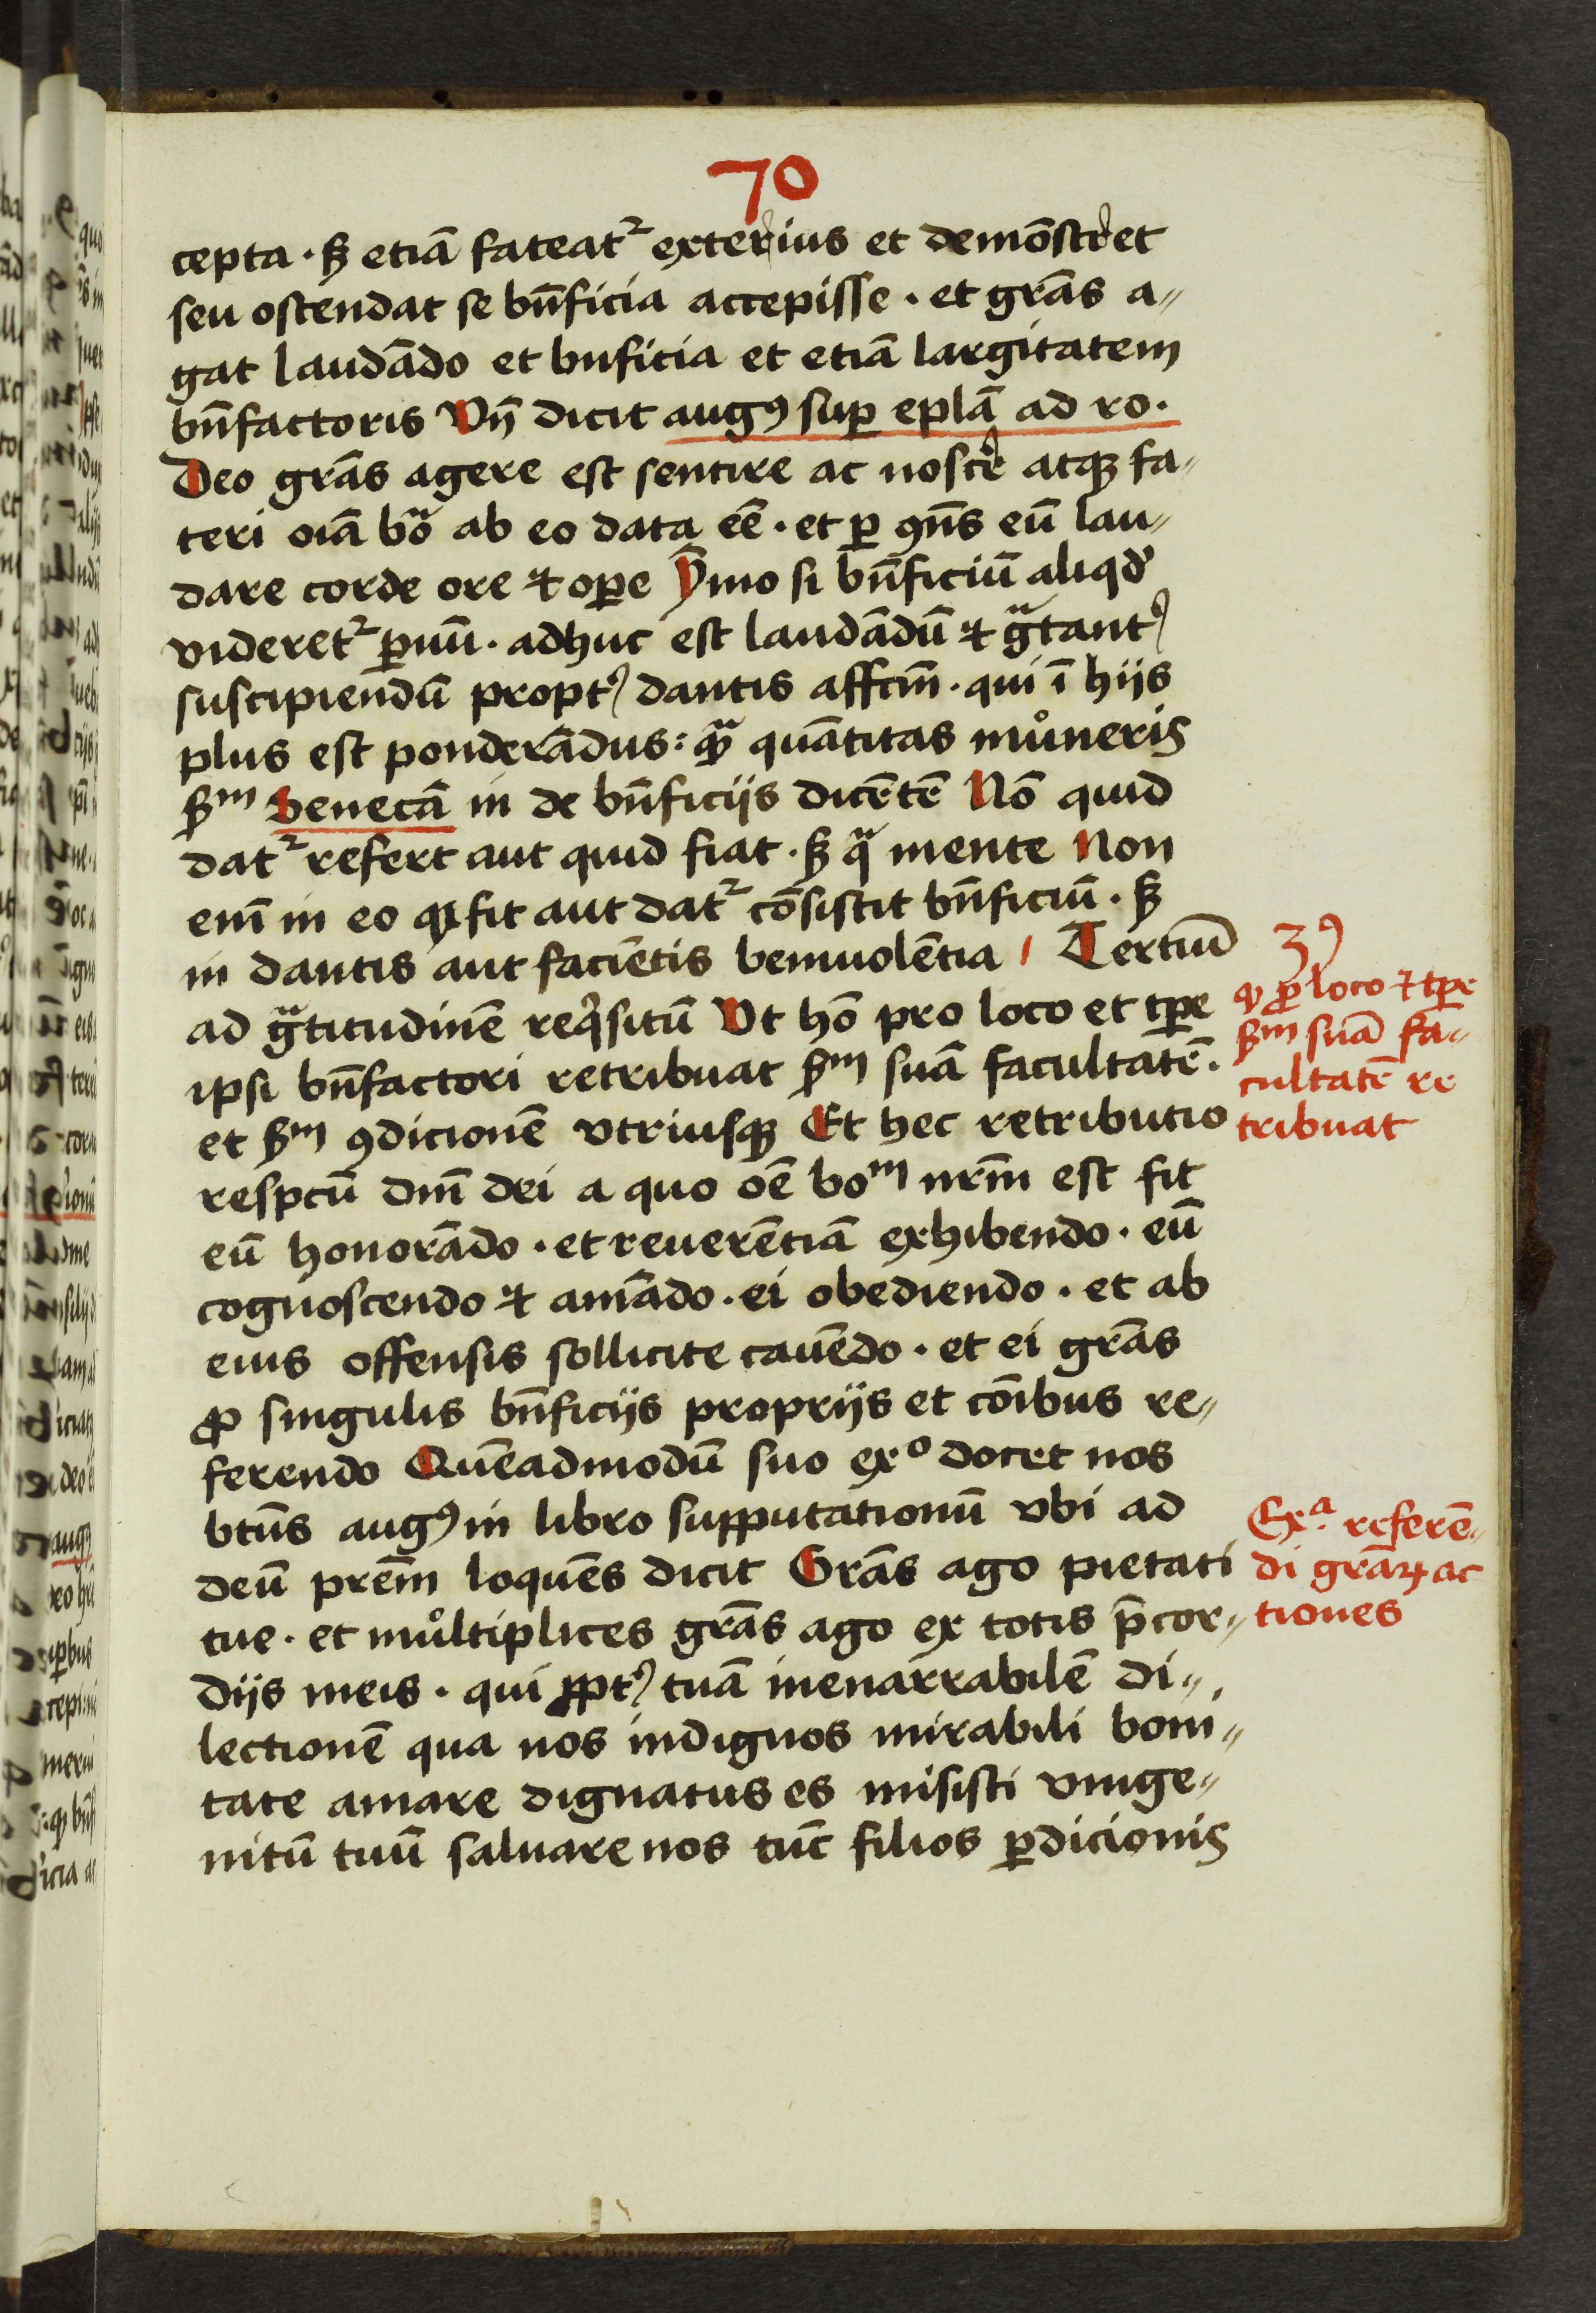 70
cepta · sꝫ etiā fateat᷑ exterius et demōstret
seu ostendat se bn̄ficia accepisse · et grās a-
gat laudādo et bnficia et etiā largitatem
bn̄factoris Vn̄ dicit augꝰ suꝑ eplā ad ro·
Deo grās agere est sentire ac noscere atqꝫ fa-
teri oīa bōa ab eo data eē · et ꝑ ꝯn̄s eū lau-
dare corde ore ⁊ oꝑe Ȳmo si bn̄ficiū aliqd
videret᷑ ꝑuū · adhuc est laudādū ⁊ gᵃtantʼ
suscipiendū proptʼ dantis affcm̄ · qui ī hijs
plus est ponderādus : qᵃꝫ quātitas mūneris
scᵈm Senecā in de bn̄ficijs dicētē Nō quid
dat᷑ refert aut quid fiat · sꝫ qᵃ mente Non
eni̅ in eo qꝫ fit aut dat᷑ cōsistit bn̄ficiū · sꝫ
in dantis aut faciētis beniuolētia Tertiū
ad gᵃtitudinē reqⁱsitū Vt hō pro loco et tꝑe
ipsi bn̄factori retribuat ẜm suā facultatē ·
et ẜm ꝯdicionē vtriusqꝫ Et hec retributio
respcū dn̄i dei a quo oē boᵐ nr̄m est fit
eū honorādo · et reuerētiā exhibendo · eū
cognoscendo ⁊ amādo · ei obediendo · et ab
eius offensis sollicite cauēdo · et ei grās
ꝓ singulis bn̄ficijs proprijs et cōibus re-
ferendo Quēadmodū suo exº docet nos
btūs augꝰ in libro supputationū vbi ad
deū prēm loquēs dicit Grās ago pietati
tue · et mūltiplices grās ago ex totis p̄cor-
dijs meis · qui ꝓptʼ tuā inenarrabilē di-
lectionē qua nos indignos mirabili boni-
tate amare dignatus es misisti vnige-
nitū tuū saluare nos tūc filios ꝑdicionis
3ꝰ
qꝫ ꝓ loco ⁊ tꝑe
ẜm suā fa-
cultatē re
tribuat
Exᵃ· referē-
di grāꝝ ac
tiones